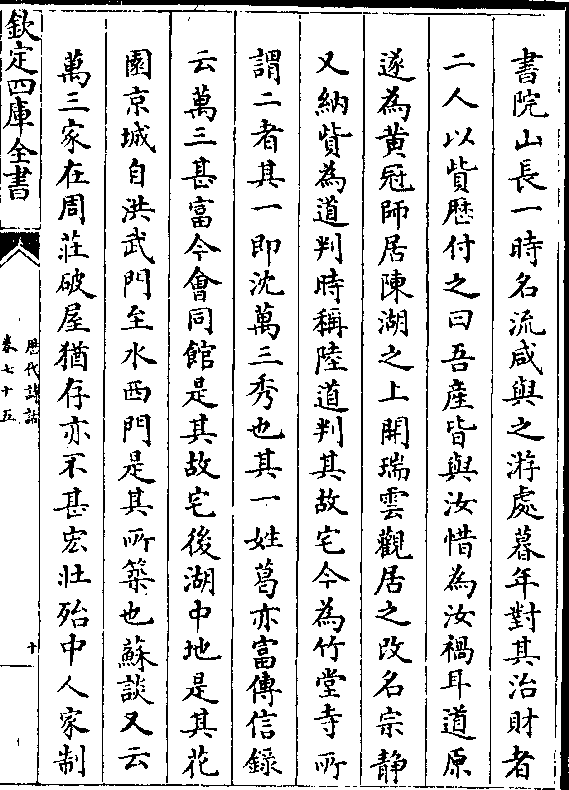 書院山長一時名流咸與之游處暮年對其治財者
二人以貲歴付之曰吾產皆與汝惜為汝禍耳道原
遂為黄冠師居陳湖之上開瑞雲觀居之改名宗静
又納貲為道判時稱陸道判其故宅今為竹堂寺所
謂二者其一即沈萬三秀也其一姓葛亦富傳信録
云萬三甚富今會同館是其故宅後湖中地是其花
園京城自洪武門至水西門是其所築也蘇談又云
萬三家在周莊破屋猶存亦不甚宏壯殆中人家制
欽定四庫全書
歴代詩話
卷七十五
十